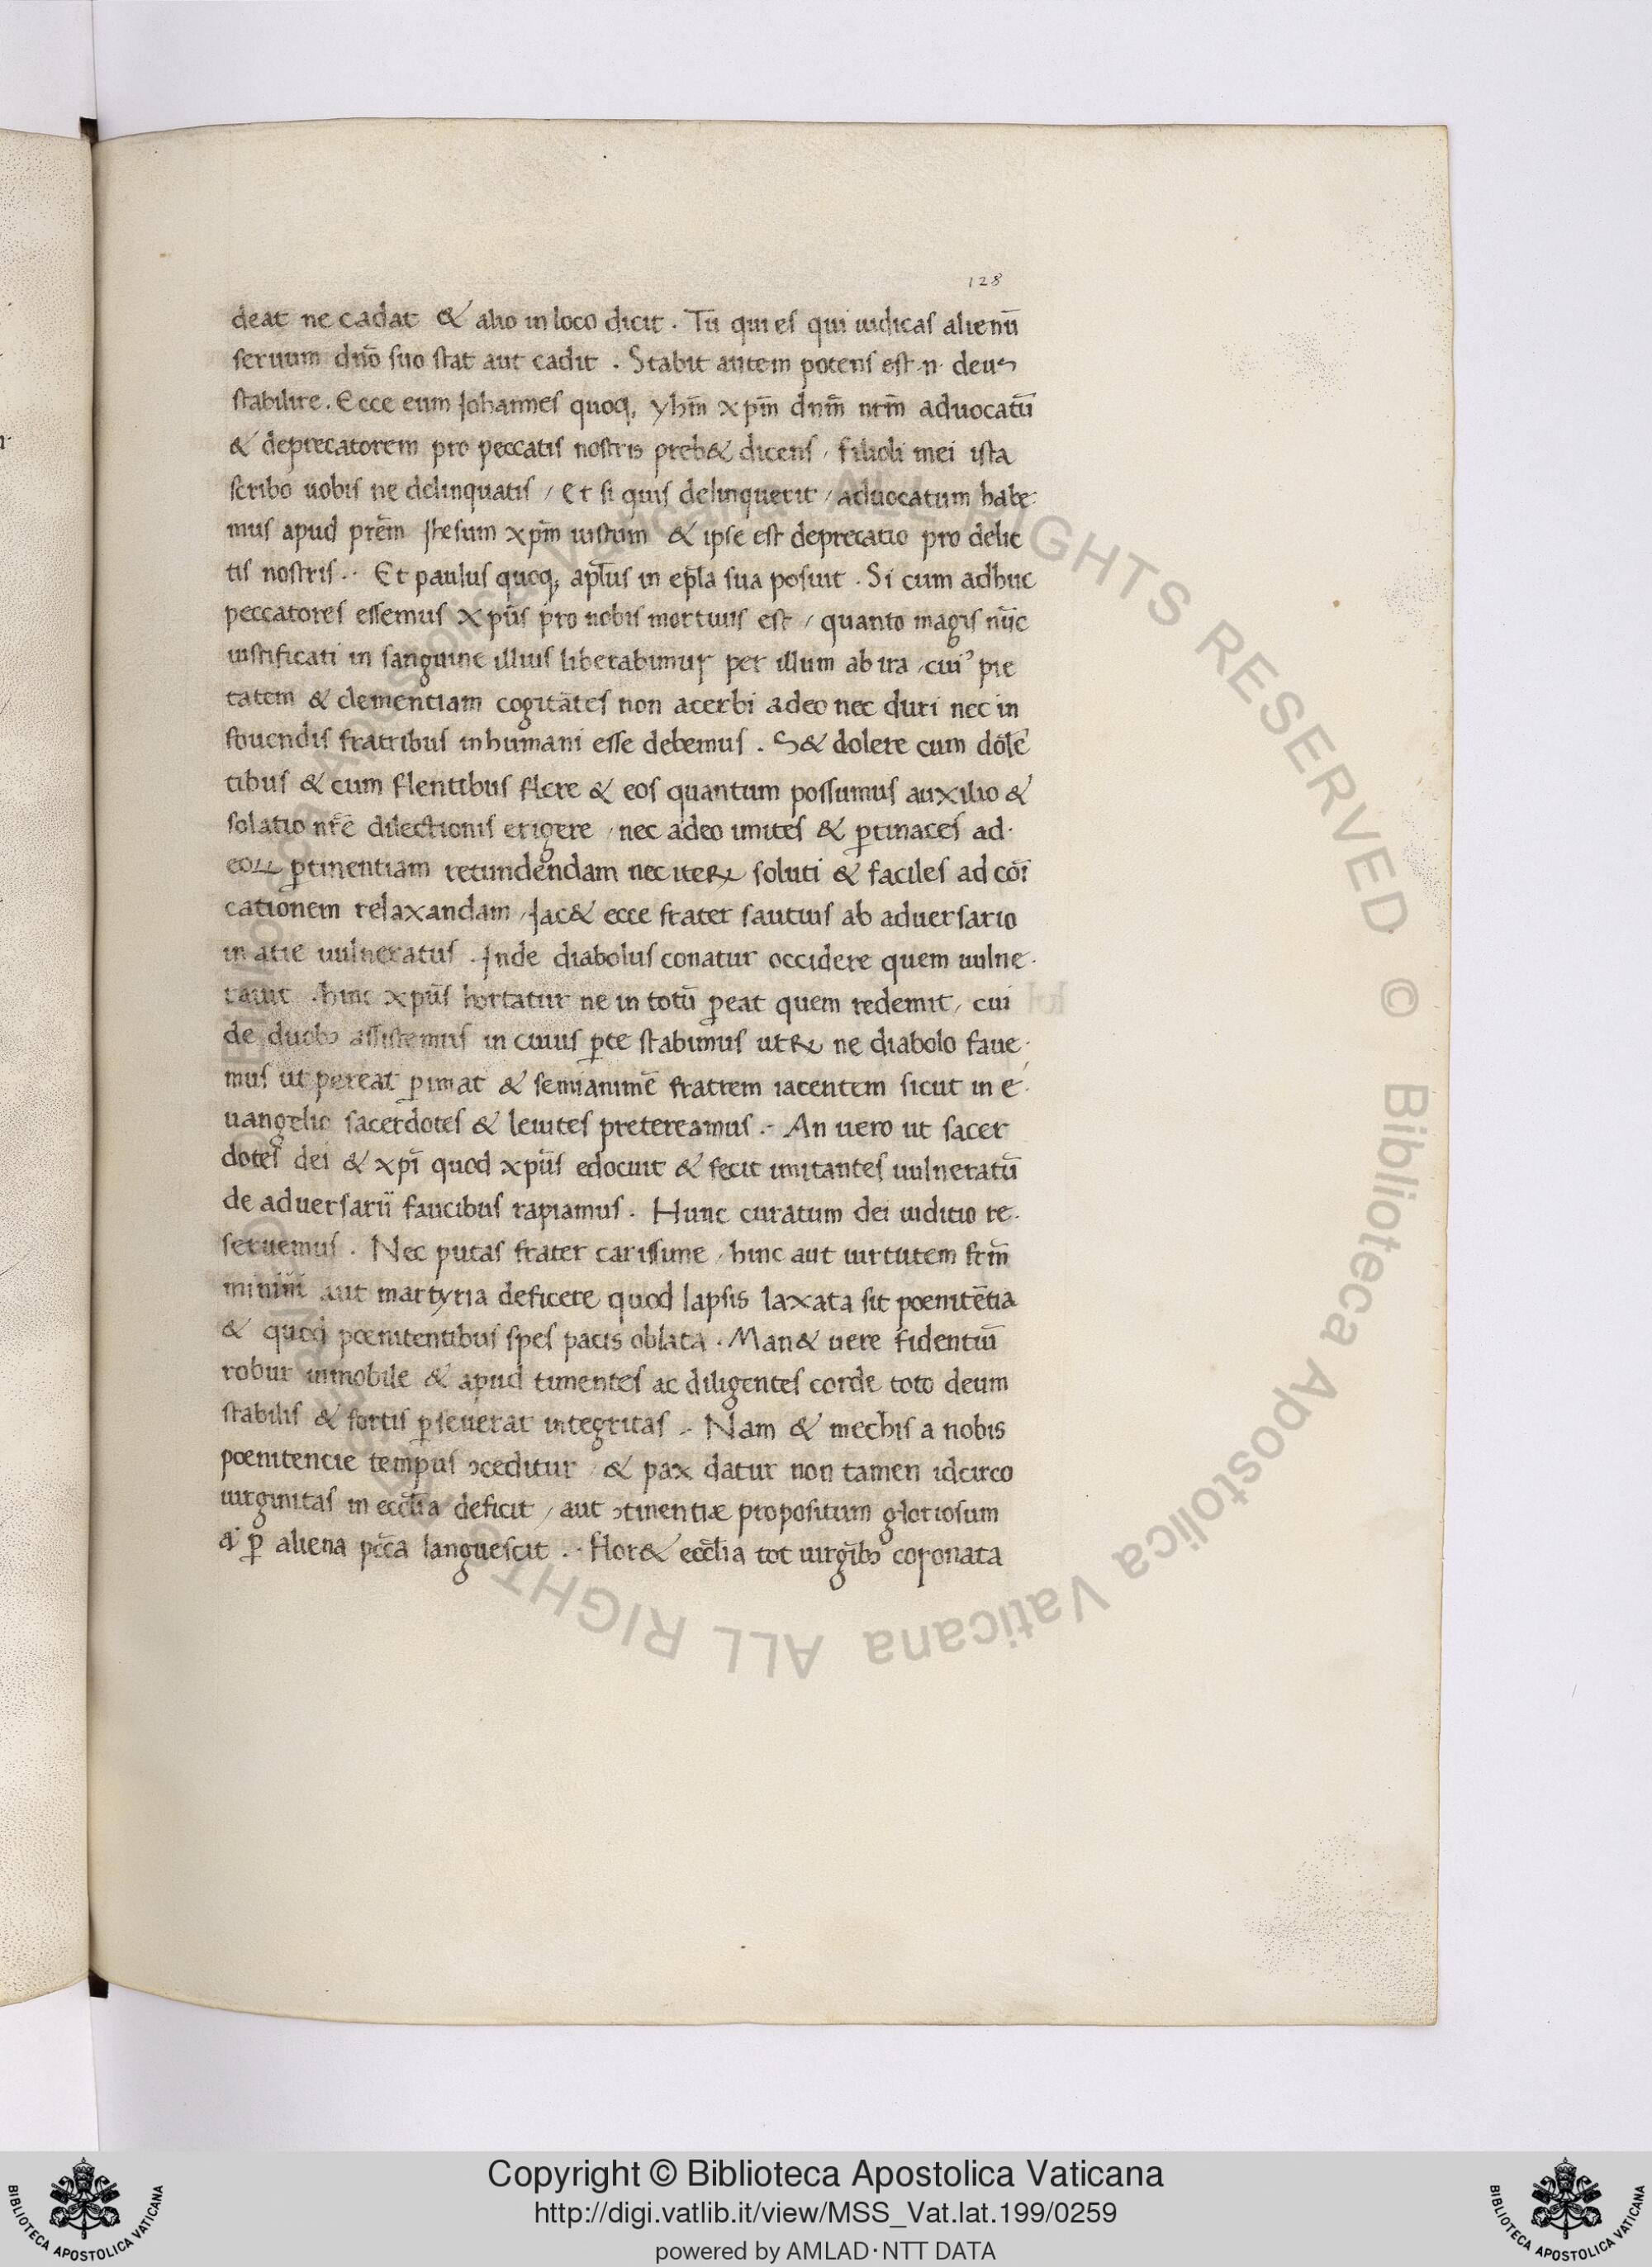 128
deat ne cadat & alio in loco dicit . Tū qui es qui iudicas alienū
seruum dn̄o suo stat aut cadit . Stabit autem potens est .n. deus
stabilire . Ecce eum Johannes quoq; yhm̄ xpm̄ dnm̄ nrm̄ aduocatū
& deprecatorem pro peccatis nostris preb& dicens / filioli mei ista
scribo uobis ne delinquatis / Et si quis delinquerit / aduocatum habe-
mus apud prēm Jhesum xpm̄ iustum & ipse est deprecatio pro delic
tis nostris .. Et paulus quoq; apl̄us in ep̄la sua posuit . Si cum adhuc
peccatores essemus xpūs pro nobis mortuus est / quanto magis nūc
iustificati in sanguine illius liberabimur per illum ab ira / cui⁹ pie
tatem & clementiam cogitātes non acerbi adeo nec duri nec in
fouendis fratribus inhumani esse debemus . S& dolere cum dolē
tibus & cum flentibus flere & eos quantum possumus auxilio &
solatio nr̄e dilectionis erigere / nec adeo imites & ꝑtinaces ad-
eoꝝ ꝑtinentiam retundendam nec iteꝝ soluti & faciles ad cōi
cationem relaxandam / Jac& ecce frater sautius ab aduersario
in atie uulneratus . Inde diabolus conatur occidere quem uulne-
rauit . hinc xpūs hortatur ne in totū ꝑeat quem redemit / cui
de duobꝫ assistemus in cuius ꝑte stabimus utꝝ ne diabolo faue-
mus ut pereat ꝑimat & semianimē fratrem iacentem sicut in e-
uangelio sacerdotes & leuites pretereamus .- An uero ut sacer
dotes dei & xpī quod xpūs edocuit & fecit imitantes uulneratū
de aduersarii faucibus rapiamus . Hunc curatum dei iuditio re-
seruemus . Nec putas frater carissime / hinc aut uirtutem frm̄
minim aut martyria deficere quod lapsis laxata sit poenitētia
& quod poenitentibus spes pacis oblata . Man& uere fidentiū
robur immobile & apud timentes ac diligentes corde toto deum
stabilis & fortis ꝑseuerat integritas .- Nam & mechis a nobis
poenitencie tempus ꝯceditur / & pax datur non tamen idcirco
uirginitas in eccl̄ia deficit / aut ꝯtinentiæ propositum gloriosum
a ꝑ aliena pc̄ca languescit .. flor& eccl̄ia tot uirgībꝫ coronata
Copyright © Biblioteca Apostolica Vaticana
http://digi.vatlib.it/view/MSS_Vat.lat.199/0259
powered by AMLAD·NTT DATA